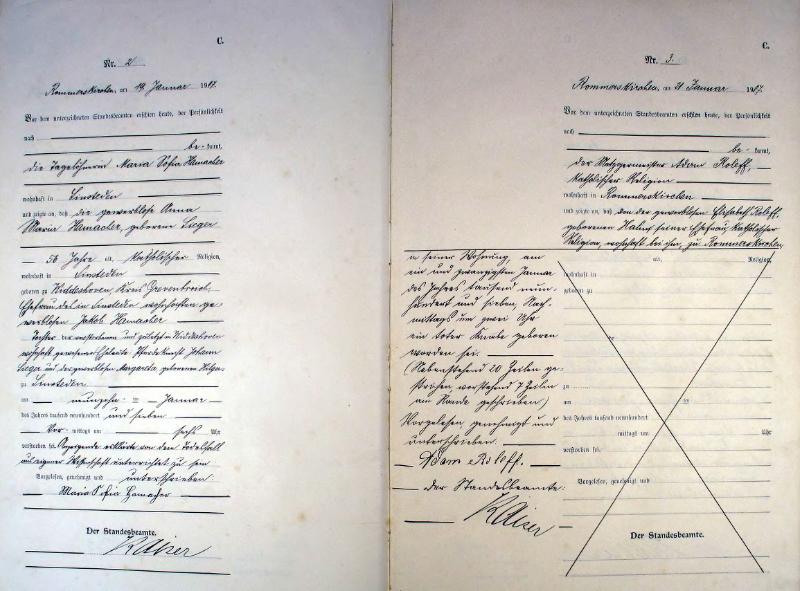 C.
Nr. 2
Rommerskirchen, am 19. Januar 1907.
Vor dem unterzeichneten Standesbeamten erschien heute, der Persönlichkeit
nach
be- kannt,
die Tagelöhnerin Maria Sofia Hamacher
wohnhaft in Sinsteden
und zeigte an, daß die gewerblose Anna
Maria Hamacher, geborene
56 Jahre alt, katholischer Religion,
wohnhaft in Sinsteden
geboren zu Kreis Grevenbroich,
Ehefrau des in Sinsteden wohnhaften ge-
werblosen Jakob Hamacher
Tochter der verstorbenen und zuletzt in
wohnhaft gewesenen Eheleute Pferdeknecht Johann
und der gewerblosen Margareta geborenen
zu Sinsteden
am neunzehn ten Januar
des Jahres tausend neunhundert und sieben
Vor mittags um sechs Uhr
verstorben sei. Anzeigende erklärte von dem Todesfall
aus eigener Wissenschaft unterrichtet zu sein
Vorgelesen, genehmigt und unterschrieben.
Maria Sofia Hamacher
Der Standesbeamte.
Kaiser
C.
Nr. 3.
Rommerskirchen, am 21. Januar 1907.
Vor dem unterzeichneten Standesbeamten erschien heute, der Persönlichkeit
nach
be- kannt,
der Metzgermeister Adam Roleff,
katholischer Religion
wohnhaft in Rommerskirchen
und zeigte an, daß von der gewerblosen Elisabeth Roleff,
geborenen seiner Ehefrau, katholischer
Religion, wohnhaft bei ihm, zu Rommerskirchen
in seiner Wohnung am
ein und zwanzigsten Januar
des Jahres tausend neun-
hundert und sieben, Nach-
mittags um zwei Uhr
ein toter Knabe geboren
worden sei.
(Nebenstehend 20 Zeilen ge-
strichen, vorstehend 7 Zeilen
am Rande geschrieben)
Vorgelesen genehmigt und
unterschrieben.
Adam Roleff.
der Standesbeamte:
Kaiser
alt, Religion,
wohnhaft in
geboren zu
zu
am ten
des Jahres tausend neunhundert
mittags um Uhr
verstorben sei.
Vorgelesen, genehmigt und
Der Standesbeamte.